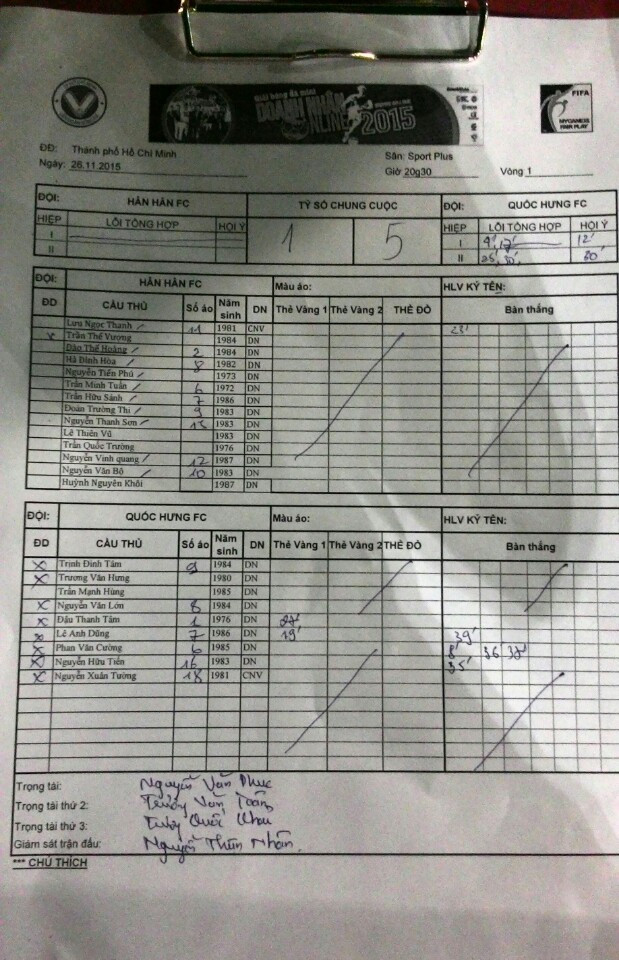 DOANH NHÂN
ONLINE 2015
FIFA
MY GAME IS
FAIR PLAY
ĐĐ: Thành phố Hồ Chí Minh
Sân: Sport Plus
Ngày: 26.11.2015
Giờ 20g30
Vòng 1
ĐỘI: HÂN HÂN FC TỶ SỐ CHUNG CUỘC ĐỘI: QUỐC HƯNG FC
HIỆP LỖI TỔNG HỢP HỘI Ý 1 5 HIỆP LỖI TỔNG HỢP HỘI Ý
I I 4', 17' 12'
II II 25', 30' 30'
ĐỘI: HÂN HÂN FC Màu áo: HLV KÝ TÊN:
ĐD CẦU THỦ Số áo Năm sinh DN Thẻ Vàng 1 Thẻ Vàng 2 THẺ ĐỎ Bàn thắng
Lưu Ngọc Thanh 11 1981 CNV 23'
x Trần Thế Vượng 1984 DN
Đào Thế Hoàng 2 1984 DN
Hà Đình Hòa 8 1982 DN
Nguyễn Tiến Phú 1973 DN
Trần Minh Tuấn 6 1972 DN
Trần Hữu Sánh 7 1986 DN
Đoàn Trường Thi 9 1983 DN
Nguyễn Thanh Sơn 13 1983 DN
Lê Thiên Vũ 1983 DN
Trần Quốc Trường 1976 DN
Nguyễn Vinh quang 12 1987 DN
Nguyễn Văn Bộ 10 1983 DN
Huỳnh Nguyên Khôi 1987 DN
ĐỘI: QUỐC HƯNG FC Màu áo: HLV KÝ TÊN:
ĐD CẦU THỦ Số áo Năm sinh DN Thẻ Vàng 1 Thẻ Vàng 2 THẺ ĐỎ Bàn thắng
x Trịnh Đình Tâm 9 1984 DN
x Trương Văn Hưng 1980 DN
Trần Mạnh Hùng 1985 DN
x Nguyễn Văn Lớn 8 1984 DN
x Đậu Thanh Tâm 1 1976 DN 27'
x Lê Anh Dũng 7 1986 DN 19' 39'
x Phan Văn Cường 6 1985 DN 8' 36' 37'
x Nguyễn Hữu Tiến 16 1983 DN 35'
x Nguyễn Xuân Tường 18 1981 CNV
Trọng tài: Nguyễn Văn Phúc
Trọng tài thứ 2: Văn Toản
Trọng tài thứ 3: Quốc
Giám sát trận đấu: Nguyễn Nhân
*** CHÚ THÍCH